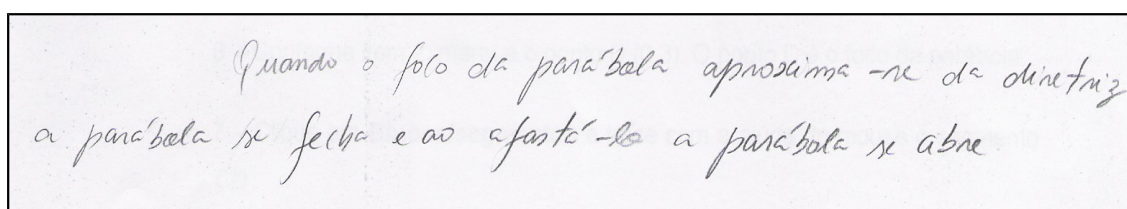 Quando o foco da parábola aproxima-se da diretriz
a parábola se fecha e ao afastá-lo a parábola se abre